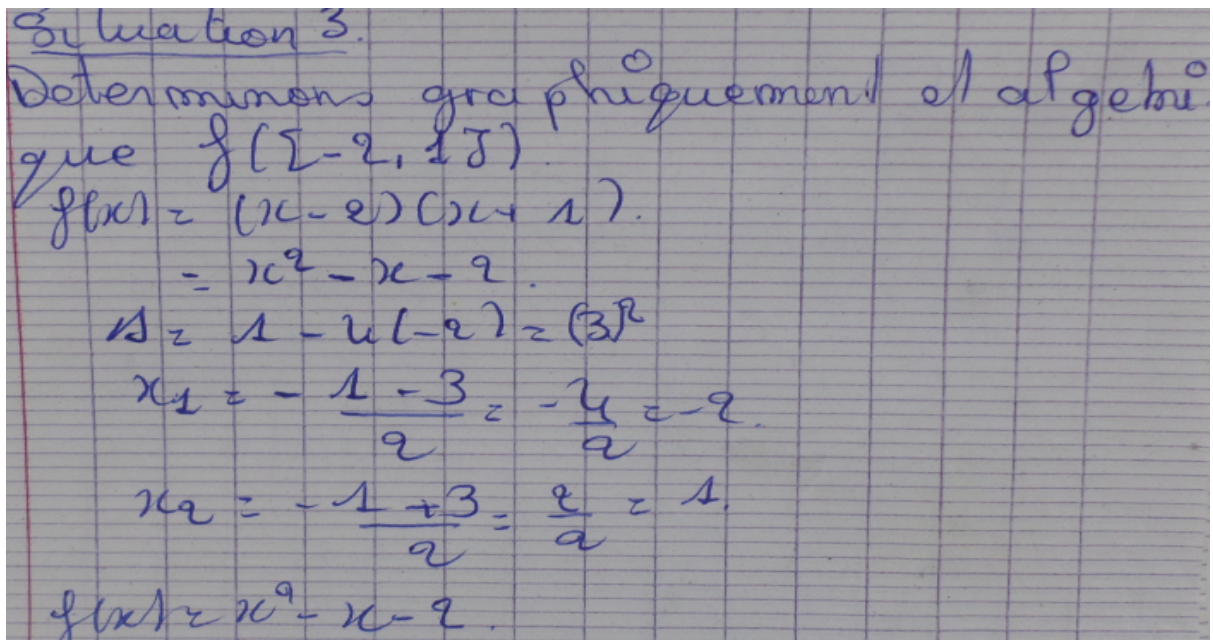 Situation 3.
Determinons graphiquement et algebri
que f([-2, 1])
f(x) = (x - 2)(x + 1).
= x² - x - 2.
Δ = 1 - 4(-2) = (3)²
x1 = - 1 - 3 / 2 = - 4 / 2 = -2.
x2 = - 1 + 3 / 2 = 2 / 2 = 1.
f(x) = x² - x - 2.